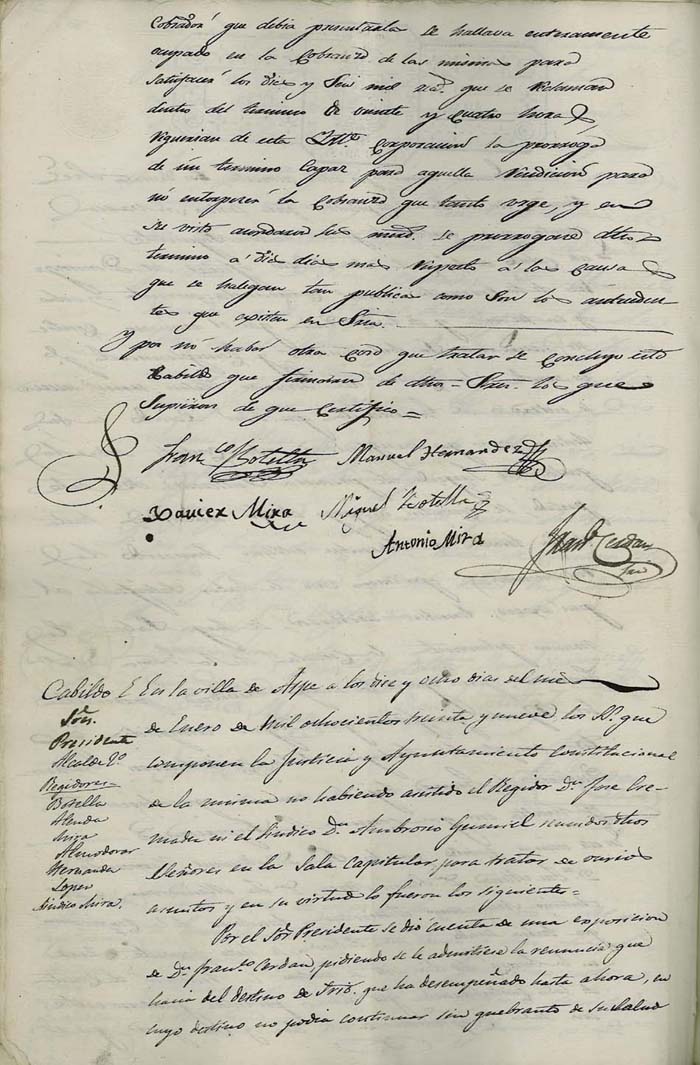 Cobrador que debia presentarla se hallava enteramente
ocupado en la Cobranza de las mismas para
satisfacer los dies y Seis mil que se reclaman
dentro del termino de veinte y cuatro horas,
requerian de esta Corporacion la prorroga
de un termino capaz para aquella rendicion para
no entorpecer la Cobranza que tanto urge, y en
su vista acordaron sus se prorrogue dho
termino á dies dias mas respecto á las Causas
que se halegan tan publica como Son los
que existen en
Y por no haber otra cosa que tratar se concluyo este
Cabildo que firmaron de dhos Sres los que
Supieron de que Certifico =
Franco Botella Manuel Hernandez
Xavier Mira Miguel Botella
Antonio Mira Franco Cerdan
Srio
Cabildo En la villa de Aspe a los dies y ocho dias del me
Sres.
Presidente
Alcalde 2o
Regidores
Botella
Alenda
Mira
Almodovar
Hernandez
Lopez
Sindico Mira.
de Enero de Mil ochocientos treinta y nueve los SS. que
componen la Justicia y Ayuntamiento Constitucional
de la misma no habiendo asistido el Regidor Dn Jose Cre-
mades ni el Sindico Dn Ambrosio Gumiel reunidos dhos
Señores en la Sala Capitular para tratar de varios
asuntos y en su virtud lo fueron los siguientes =
Por el Sor Presidente se dió cuenta de una exposicion
de Dn Franco Cerdan pidiendo se le admitiese la renuncia que
hacia del destino de Srio. que ha desempeñado hasta ahora, en
cuyo destino no podia continuar sin quebranto de su salud